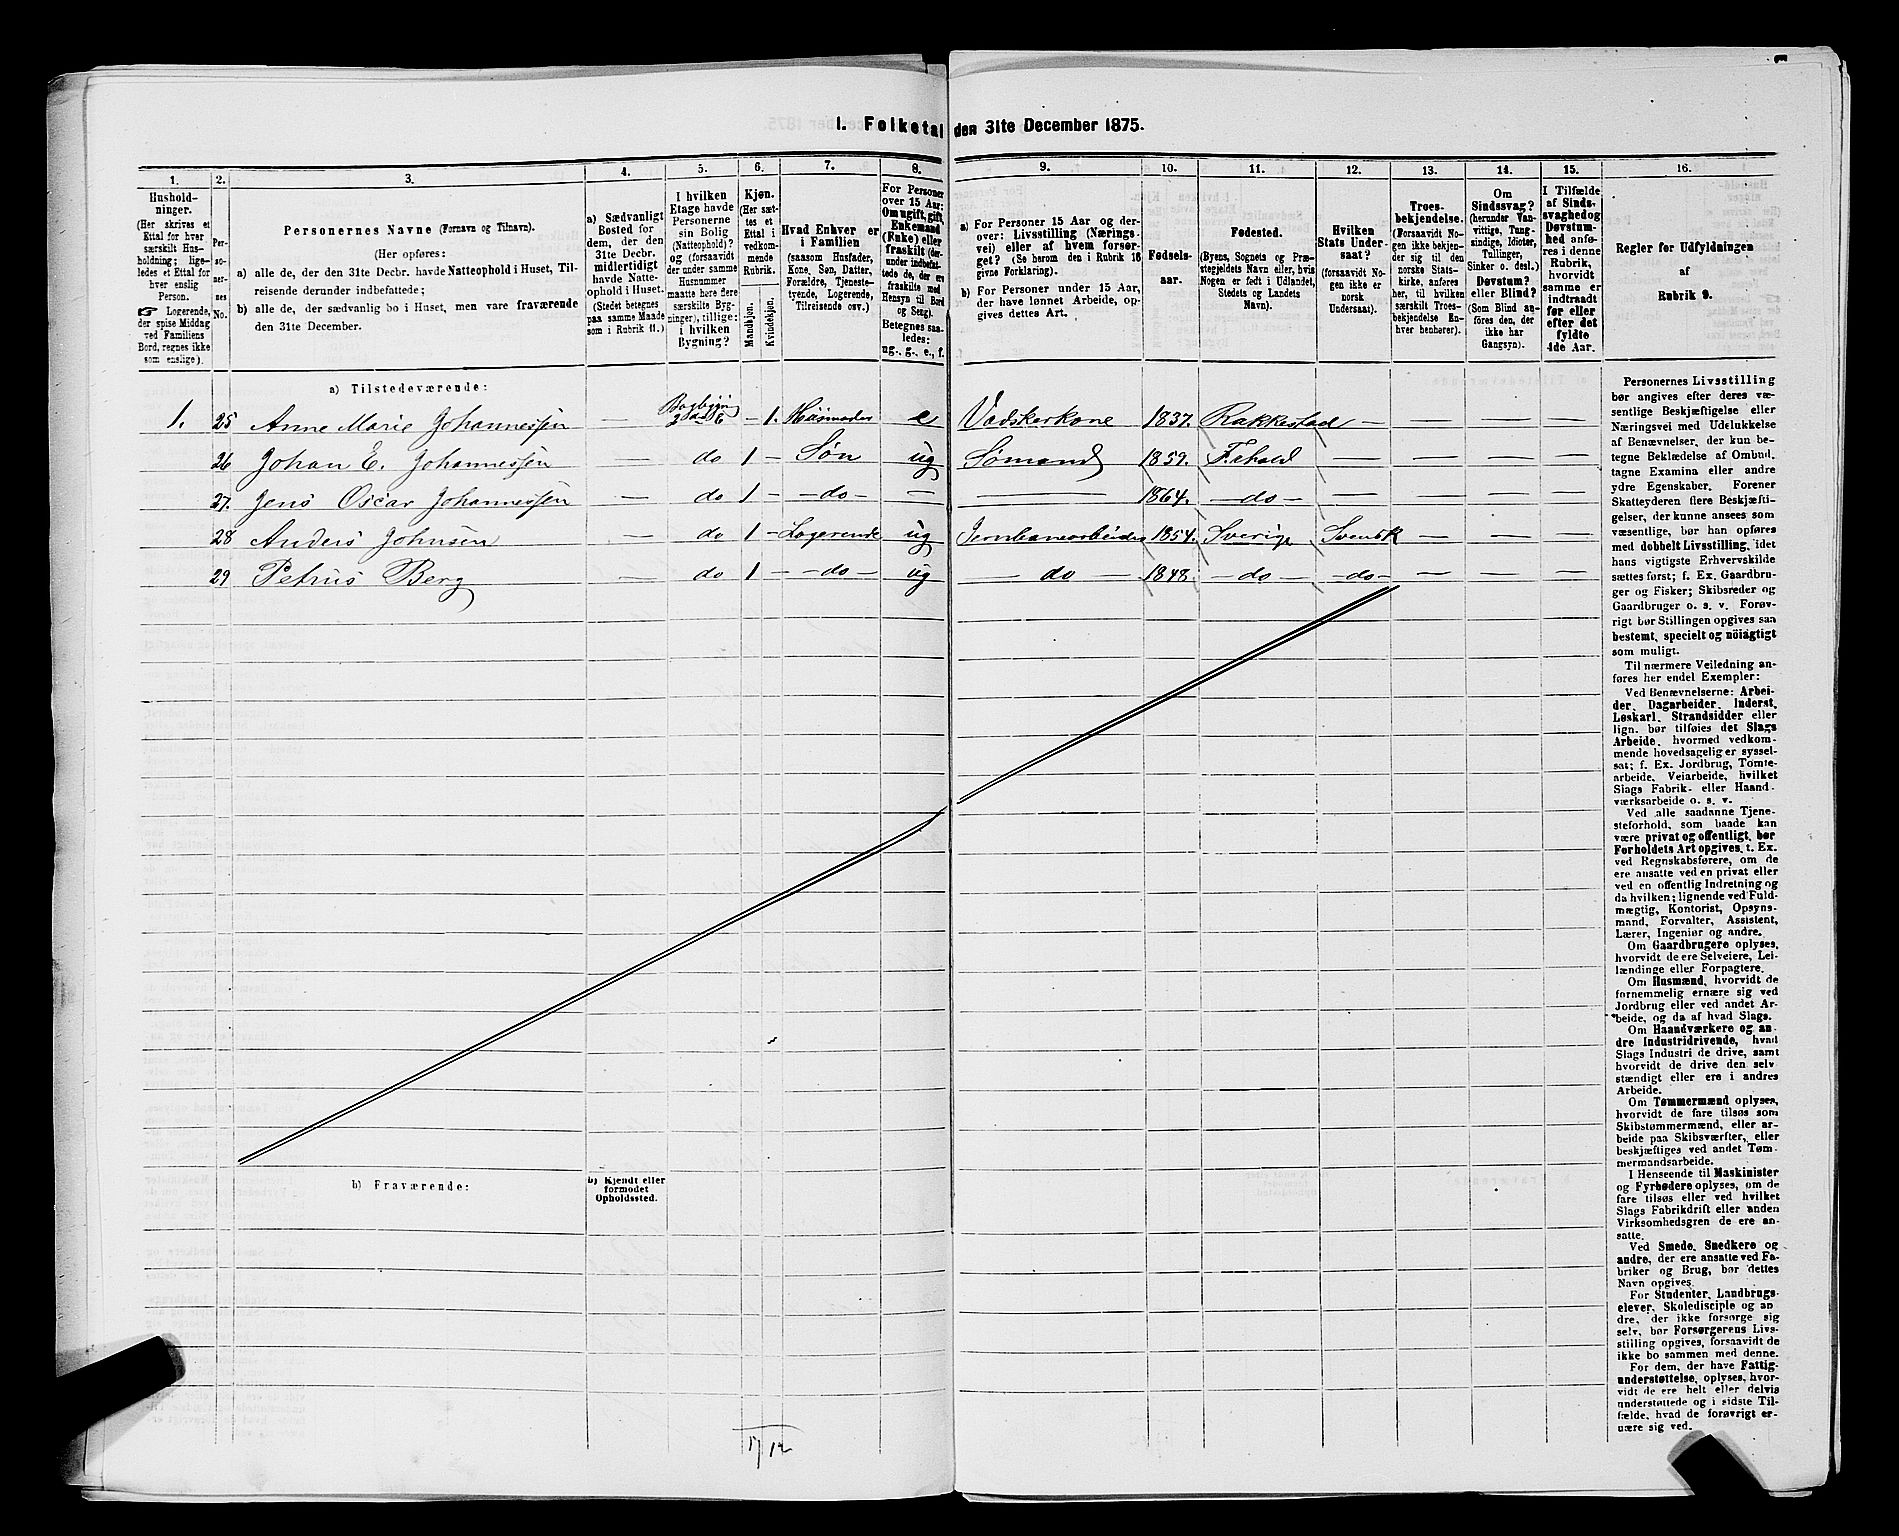 1. Folketal den 31te December 1875.
1.
Hushold-
ninger.
(Her skrives et
Ettal for hver
særskilt Hus-
holdning; lige-
ledes et Ettal for
hver enslig
Person.
☞ Logerende,
der spise Middag
ved Familiens
Bord, regnes ikke
som enslige).
2.
Per-
so-
ner-
nes
No.
3.
Personernes Navne (Fornavn og Tilnavn).
(Her opføres:
a) alle de, der den 31te Decbr. havde Natteophold i Huset, Til-
reisende derunder indbefattede;
b) alle de, der sædvanlig bo i Huset, men vare fraværende
den 31te December.
4.
a) Sædvanligt
Bosted for
dem, der den
31te Decbr.
midlertidigt
havde Natte-
ophold i Huset.
(Stedet betegnes
paa samme Maade
som i Rubrik 11.)
5.
I hvilken
Etage havde
Personerne
sin Bolig
(Natteophold)?
og (forsaavidt
der under samme
Husnummer
maatte høre flere
særskilte Byg-
ninger), tillige:
i hvilken
Bygning?
6.
Kjøn.
(Her sæt-
tes et
Ettal i
vedkom-
mende
Rubrik.
Mandkjøn.
Kvindekjøn.
7.
Hvad Enhver er
i Familien
(saasom Husfader,
Kone, Søn, Datter,
Forældre, Tjeneste-
tyende, Logerende,
Tilreisende osv.)
8.
For Personer
over 15 Aar:
Om ugift, gift,
Enkemand
(Enke) eller
fraskilt (der-
under indbefat-
tede de, der ere
fraskilte med
Hensyn til Bord
og Seng).
Betegnes saa-
ledes:
ug., g., e., f.
9.
a) For Personer 15 Aar og der-
over: Livsstilling (Nærings-
vei) eller af hvem forsør-
get? (Se herom den i Rubrik 16
givne Forklaring).
b) For Personer under 15 Aar,
der have lønnet Arbeide, op-
gives dettes Art.
10.
Fødsels-
aar.
11.
Fødested.
(Byens, Sognets og Præ-
stegjeldets Navn eller, hvis
Nogen er født i Udlandet,
Stedets og Landets
Navn).
12.
Hvilken
Stats Under-
saat?
(forsaavidt No-
gen ikke er
norsk
Undersaat).
13.
Troes-
bekjendelse.
(Forsaavidt No-
gen ikke bekjen-
der sig til den
norske Stats-
kirke, anføres
her, til hvilken
særskilt Troes-
bekjendelse En-
hver henhører).
14.
Om
Sindssvag?
(herunder Van-
vittige, Tung-
sindige, Idioter,
Tullinger,
Sinker o. desl.)
Døvstum?
eller Blind?
(Som Blind an-
føres den, der
ikke har
Gangsyn).
15.
I Tilfælde
af Sinds-
svaghed og
Døvstum-
hed anfø-
res i denne
Rubrik,
hvorvidt
samme er
indtraadt
før eller
efter det
fyldte
4de Aar.
16.
Regler for Udfyldningen
af
Rubrik 9.
a) Tilstedeværende:
1. 25 Anne Marie Johannessen — Bagbygn 2den E — 1. Husmoder e Vadskerkone 1837. Rakkestad — — — —
26 Johan E. Johannessen — do 1 — Søn ug Sømand 1859. Fehold — — — —
27. Jens Oscar Johannessen — do 1 — —do— — — 1864. —do— — — — —
28 Anders Johnsen — do 1 — Logerende ug Jernbanearbeider 1854. Sverige Svensk — — —
29 Petrus Berg — do 1 — —do— ug — do — 1848. —do— —do— — — —
b) Fraværende:
b) Kjendt eller
formodet
Opholdssted.
Personernes Livsstilling
bør angives efter deres væ-
sentlige Beskjæftigelse eller
Næringsvei med Udelukkelse
af Benævnelser, der kun be-
tegne Beklædelse af Ombud,
tagne Examina eller andre
ydre Egenskaber. Forener
Skatteyderen flere Beskjæfti-
gelser, der kunne ansees som
væsentlige, bør han opføres
med dobbelt Livsstilling, idet
hans vigtigste Erhvervskilde
sættes først; f. Ex. Gaardbru-
ger og Fisker; Skibsreder og
Gaardbruger o. s. v. Forøv-
rigt bør Stillingen opgives saa
bestemt, specielt og nöiagtigt
som muligt.
Til nærmere Veiledning an-
føres her endel Exempler:
Ved Benævnelserne: Arbei-
der, Dagarbeider, Inderst,
Løskarl, Strandsidder eller
lign. bør tilføies det Slags
Arbeide, hvormed vedkom-
mende hovedsagelig er syssel-
sat; f. Ex. Jordbrug, Tomte-
arbeide, Veiarbeide, hvilket
Slags Fabrik- eller Haand-
værksarbeide o. s. v.
Ved alle saadanne Tjene-
steforhold, som baade kan
være privat og offentligt, bør
Forholdets Art opgives, t. Ex.
ved Regnskabsførere, om de
ere ansatte ved en privat eller
ved en offentlig Indretning og
da hvilken; lignende ved Fuld-
mægtig, Kontorist, Opsyns-
mand, Forvalter, Assistent,
Lærer, Ingeniør og andre.
Om Gaardbrugere oplyses,
hvorvidt de ere Selveiere, Lei-
lændinge eller Forpagtere.
Om Husmænd, hvorvidt de
fornemmelig ernære sig ved
Jordbrug eller ved andet Ar-
beide, og da af hvad Slags.
Om Haandværkere og an-
dre Industridrivende, hvad
Slags Industri de drive, samt
hvorvidt de drive den selv-
stændigt eller ere i andres
Arbeide.
Om Tømmermænd oplyses,
hvorvidt de fare tilsøs som
Skibstømmermænd, eller ar-
beide paa Skibsværfter, eller
beskjæftiges ved andet Tøm-
mermandsarbeide.
I Henseende til Maskinister
og Fyrbødere oplyses, om de
fare tilsøs eller ved hvilket
Slags Fabrikdrift eller anden
Virksomhedsgren de ere an-
satte.
Ved Smede, Snedkere og
andre, der ere ansatte ved Fa-
briker og Brug, bør dettes
Navn opgives.
For Studenter, Landbrugs-
elever, Skoledisciple og an-
dre, der ikke forsørge sig
selv, bør Forsørgerens Livs-
stilling opgives, forsaavidt de
ikke bo sammen med denne.
For dem, der have Fattig-
understøttelse, oplyses, hvor-
vidt de ere helt eller delvis
understøttede og i sidste Til-
fælde, hvad de forøvrigt er-
nære sig ved.
17 12